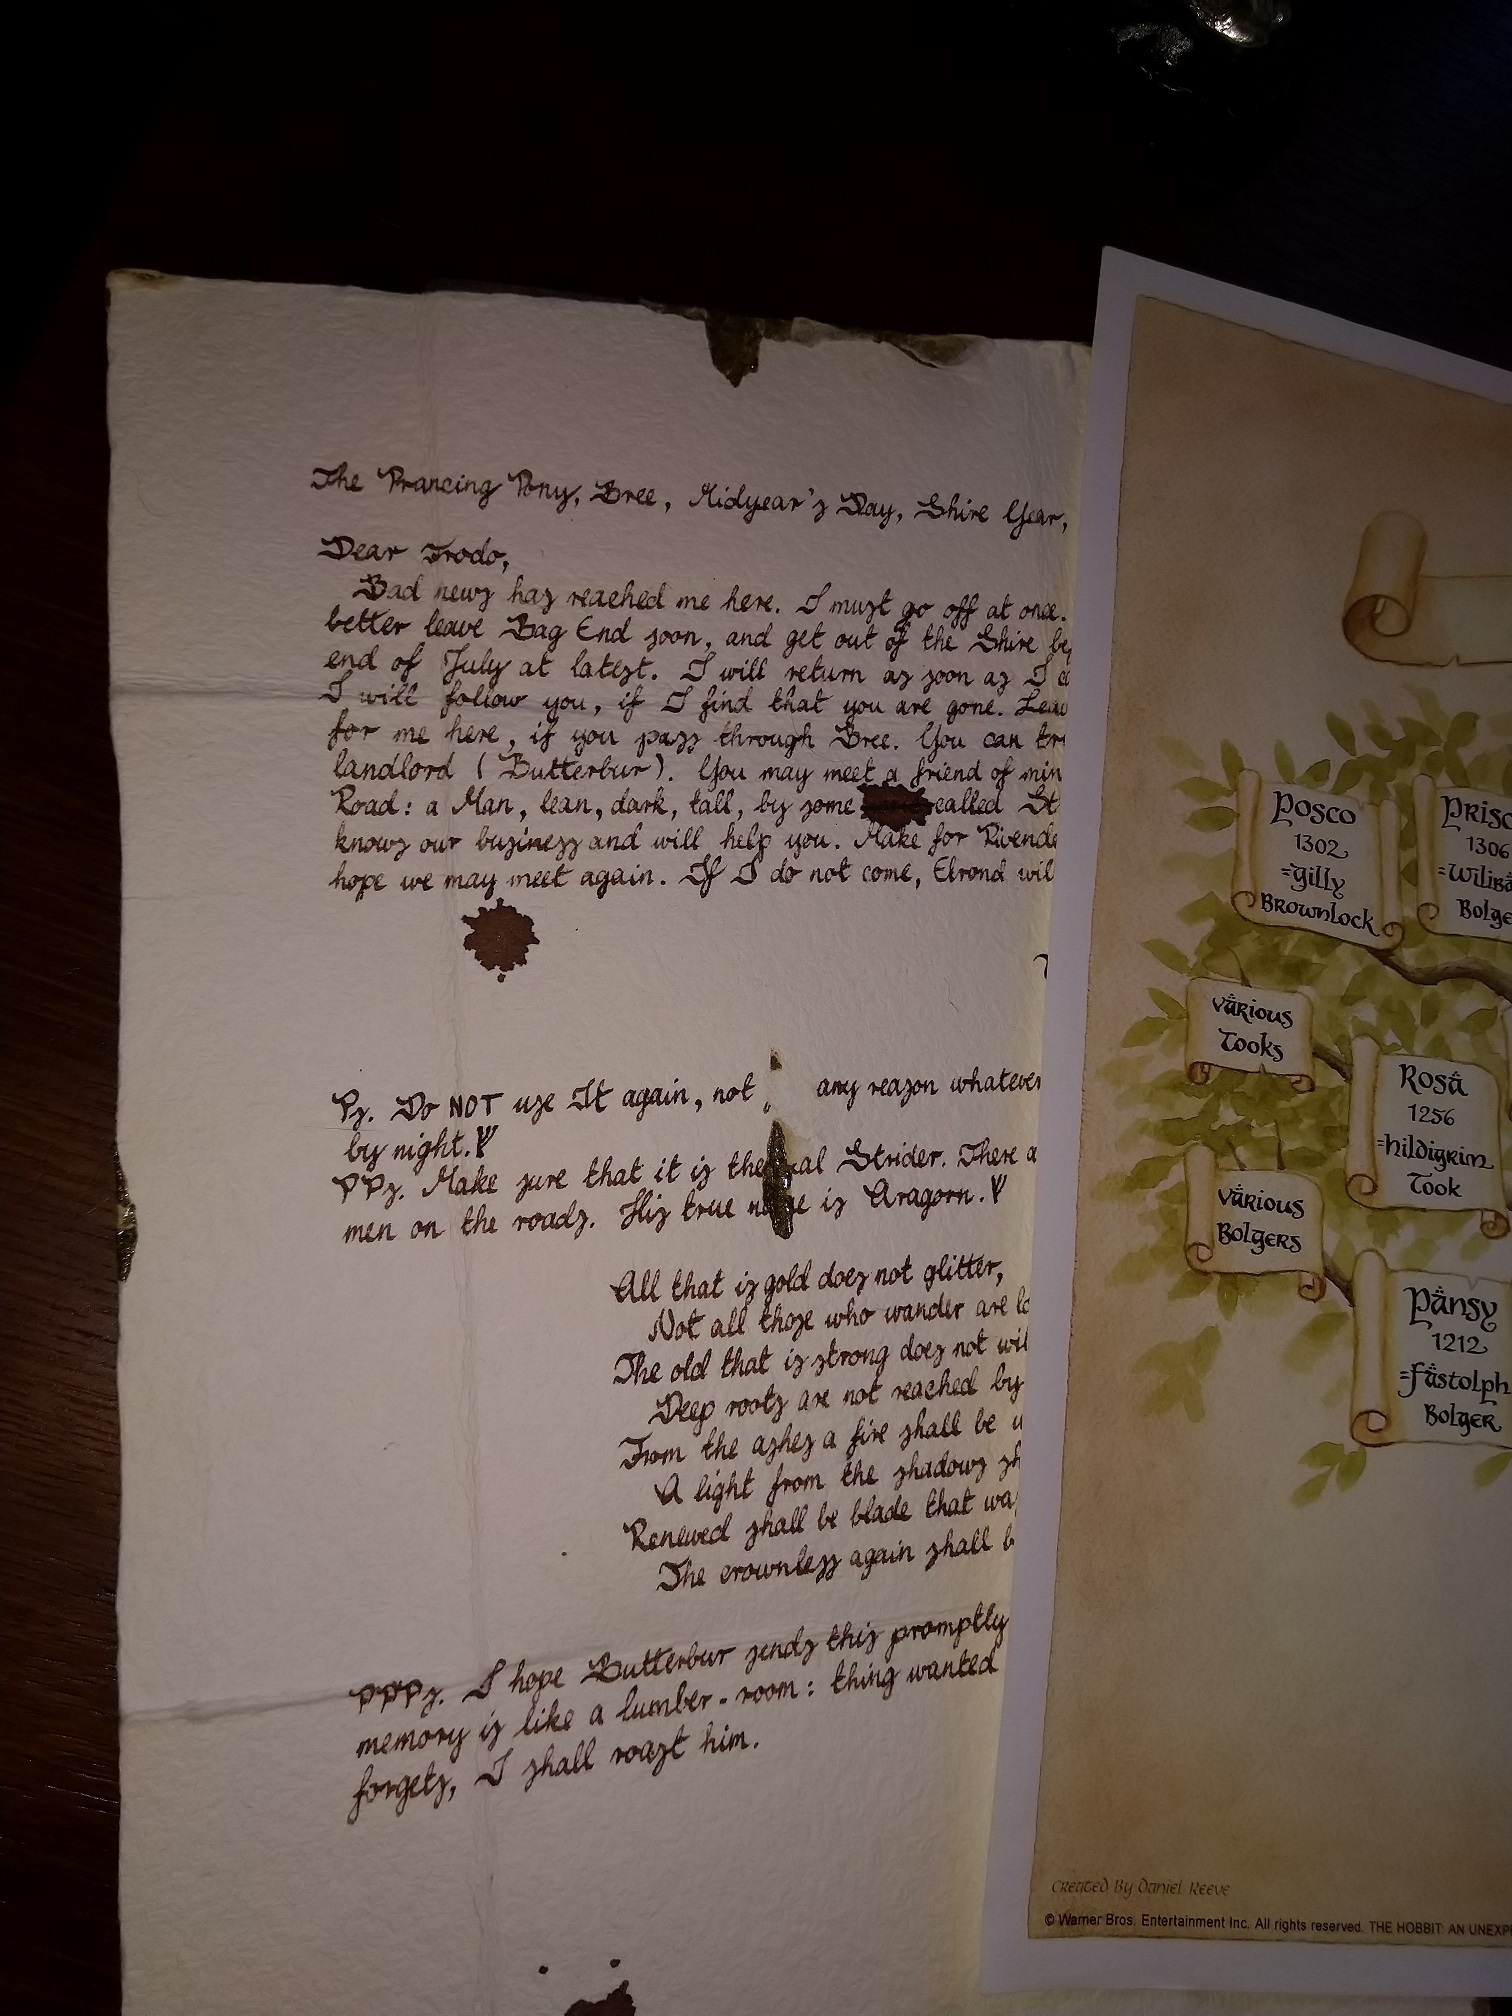 The Prancing Pony, Bree, Midyear's Day, Shire Year,
Dear Frodo,
Bad news has reached me here. I must go off at once.
better leave Bag End soon, and get out of the Shire
end of July at latest. I will return as soon as I
I will follow you, if I find that you are gone.
for me here, if you pass through Bree. You can
landlord (Butterbur). You may meet a friend of
Road: a Man, lean, dark, tall, by some called
knows our business and will help you. Make for
hope we may meet again. If I do not come, Elrond
Ps. Do NOT use It again, not any reason whatever
by night.
PPs. Make sure that it is the Strider. There
men on the roads. His true is Aragorn.
All that is gold does not glitter,
Not all those who wander are
The old that is strong does not
Deep roots are not reached by
From the ashes a fire shall be
A light from the shadows
Renewed shall be blade that
The crownless again shall
PPPs. I hope Butterbur sends this promptly
memory is like a lumber-room: thing wanted
forgets, I shall roast him.
Posco
1302
=Gilly
Brownlock
1306
Various
Tooks
Rosa
1256
=Hildigrim
Took
Various
Bolgers
Pansy
1212
=Fastolph
Bolger
Created By Daniel Reeve
© Warner Bros. Entertainment Inc. All rights reserved. THE HOBBIT: AN